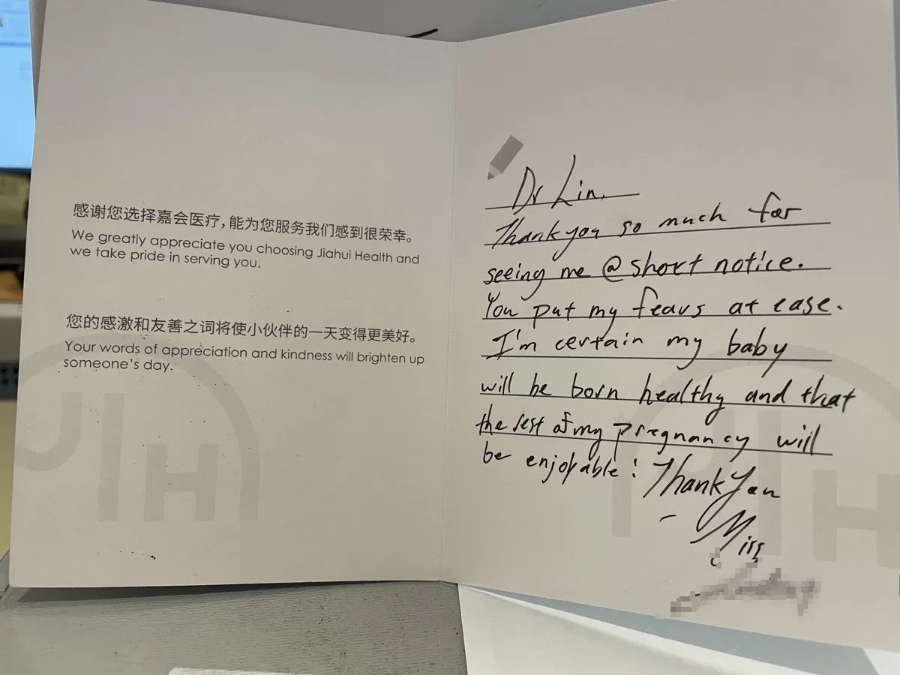 感谢您选择嘉会医疗，能为您服务我们感到很荣幸。
We greatly appreciate you choosing Jiahui Health and
we take pride in serving you.
您的感激和友善之词将使小伙伴的一天变得更美好。
Your words of appreciation and kindness will brighten up
someone's day.
JIH
Dr Lin,
Thank you so much for
seeing me @ short notice.
You put my fears at ease.
I'm certain my baby
will be born healthy and that
the rest of my pregnancy will
be enjoyable! Thank You
- Miss
JIH